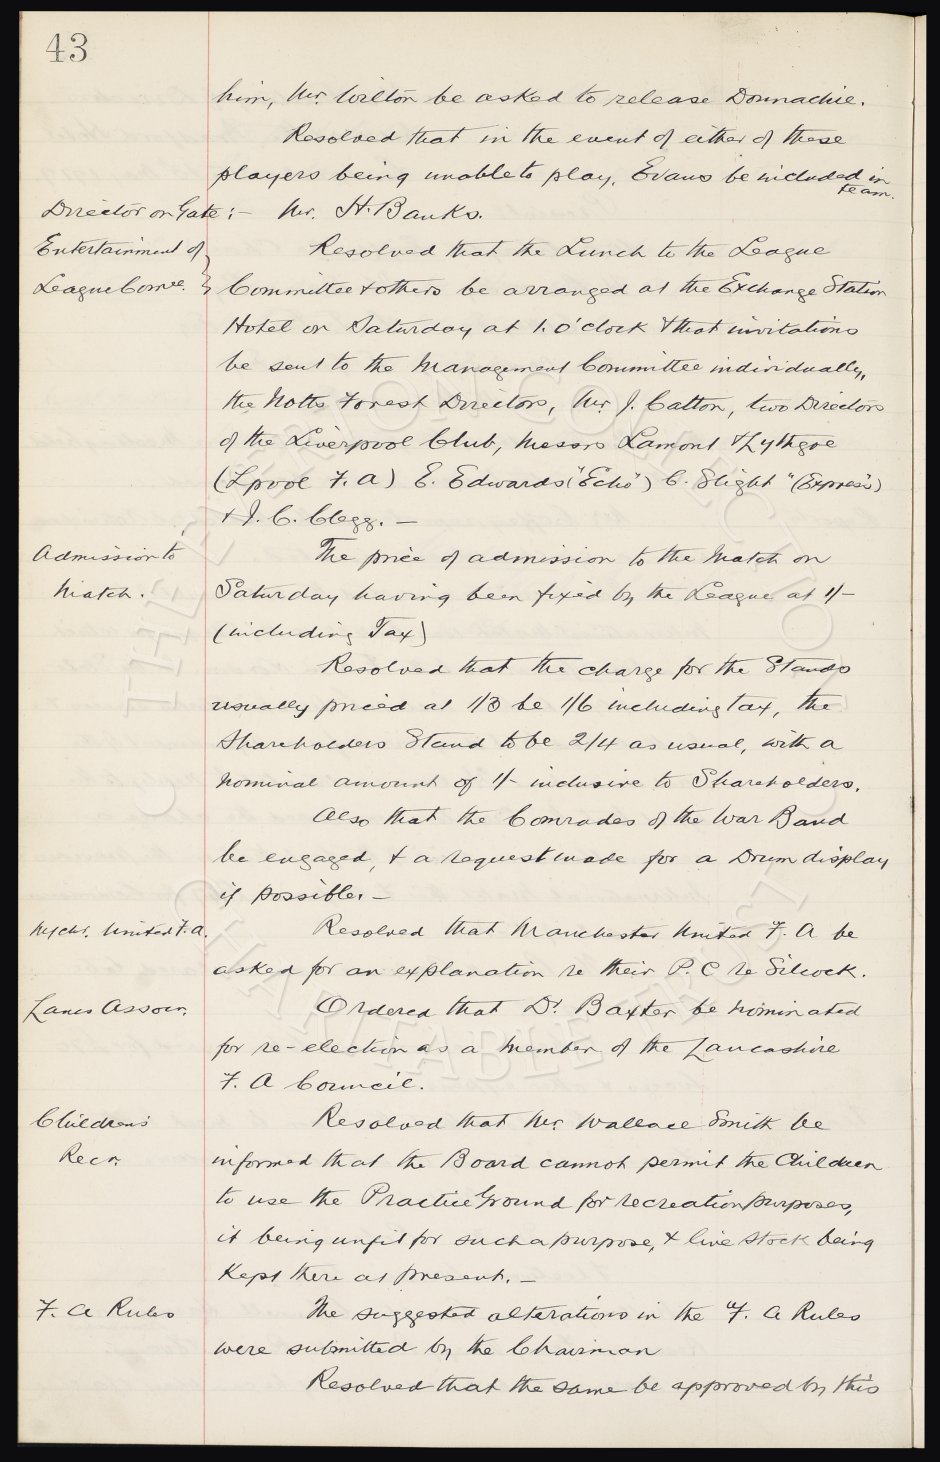 43
him, Mr. Wilton be asked to release Donnachie.
Resolved that in the event of either of these
players being unable to play, Evans be included in
team.
Director on Gate :- Mr. H. Banks.
Entertainment of
League Comee.
Resolved that the Lunch to the League
Committee & others be arranged at the Exchange Station
Hotel on Saturday at 1. o'clock & that invitations
be sent to the Management Committee individually,
the Notts Forest Directors, Mr. J. Catton, two Directors
of the Liverpool Club, Messrs Lamont & Lythgoe
(Lpool F. A) E. Edwards ("Echo") C. Slight "(Express")
& J. C. Clegg. -
Admission to
Match.
The price of admission to the Match on
Saturday having been fixed by the League at 1/-
(including Tax)
Resolved that the charge for the Stands
usually priced at 1/3 be 1/6 including tax, the
Shareholders Stand to be 2/4 as usual, with a
nominal amount of 1/- inclusive to Shareholders.
Also that the Comrades of the War Band
be engaged, & a request made for a Drum display
if possible. -
Mchr. United F. A.
Resolved that Manchester United F. A be
asked for an explanation re their P. C re Silcock.
Lancs Assocn.
Ordered that Dr. Baxter be nominated
for re-election as a member of the Lancashire
F. A Council.
Childrens'
Recn.
Resolved that Mr. Wallace Smith be
informed that the Board cannot permit the Children
to use the Practice Ground for recreation purposes,
it being unfit for such a purpose, & live stock being
kept there at present. -
F. A Rules
The suggested alterations in the F. A Rules
were submitted by the Chairman
Resolved that the same be approved by this